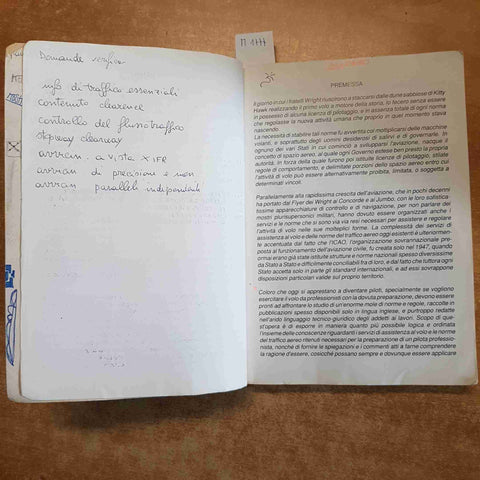 Domande verifica
info di traffico essenziali
contenuto clearence
controllo del flusso traffico
stopway clearway
avvicin. a vista x IFR
avvicinan di precisione e non
avvicinan paralleli indipendenti
M 1777
PREMESSA
Il giorno in cui i fratelli Wright riuscirono a staccarsi dalle dune sabbiose di Kitty
Hawk realizzando il primo volo a motore della storia, lo fecero senza essere
in possesso di alcuna licenza di pilotaggio, e in assenza totale di ogni norma
che regolasse la nuova attività umana che proprio in quel momento stava
nascendo.
La necessità di stabilire tali norme fu avvertita col moltiplicarsi delle macchine
volanti, e soprattutto degli uomini desiderosi di salirvi e di governarle. In
ognuno dei vari Stati in cui cominciò a svilupparsi l'aviazione, nacque il
concetto di spazio aereo, al quale ogni Governo estese ben presto la propria
autorità. In forza della quale furono poi istituite licenze di pilotaggio, stilate
regole di comportamento, e delimitate porzioni dello spazio aereo entro cui
l'attività di volo può essere alternativamente proibita, limitata, o soggetta a
determinati vincoli.
Parallelamente alla rapidissima crescita dell'aviazione, che in pochi decenni
ha portato dal Flyer dei Wright al Concorde e al Jumbo, con le loro sofistica-
tissime apparecchiature di controllo e di navigazione, per non parlare dei
mostri plurisupersonici militari, hanno dovuto essere organizzati anche i
servizi e le norme che si sono via via resi necessari per assistere e regolare
l'attività di volo nelle sue molteplici forme. La complessità dei servizi di
assistenza al volo e delle norme del traffico aereo oggi esistenti è ulteriormen-
te accentuata dal fatto che l'ICAO, l'organizzazione sovrannazionale pre-
posta al funzionamento dell'aviazione civile, fu creata solo nel 1947, quando
ormai erano già state istituite strutture e norme nazionali spesso diversissime
da Stato a Stato e difficilmente conciliabili tra di loro, e dal fatto che tuttora ogni
Stato accetta solo in parte gli standard internazionali, e ad essi sovrappone
disposizioni particolari valide sul proprio territorio.
Coloro che oggi si apprestano a diventare piloti, specialmente se vogliono
esercitare il volo da professionisti con la dovuta preparazione, devono essere
pronti ad affrontare lo studio di un'enorme mole di norme e regole, raccolte in
pubblicazioni spesso disponibili solo in lingua inglese, e purtroppo redatte
nell'arido linguaggio tecnico-giuridico degli addetti ai lavori. Scopo di que-
st'opera è di esporre in maniera quanto più possibile logica e ordinata
l'insieme delle conoscenze riguardanti i servizi di assistenza al volo e le norme
del traffico aereo ritenuti necessari per la preparazione di un pilota professio-
nista, nonché di fornire le spiegazioni e i commenti atti a farne comprendere
la ragione d'essere, cosicché possano sempre e dovunque essere applicate